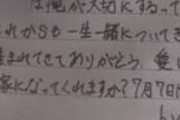 は俺が大切にするって
れからも一生一緒についてき
産まれてきてありがとう。愛
家になってくれますか?7月7日に